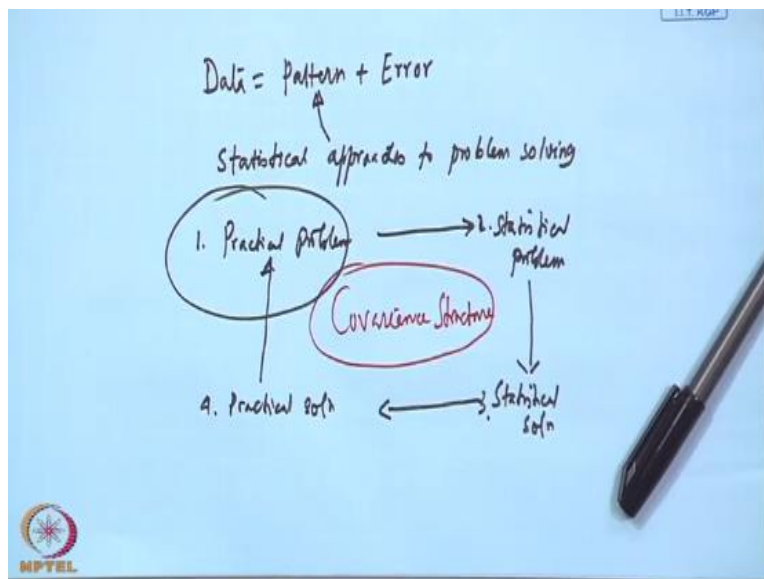 I.I.T. KGP
Data = Pattern + Error
Statistical approaches to problem solving
1. Practical problem
2. Statistical
problem
Covariance Structure
4. Practical soln
3. Statistical
soln
NPTEL